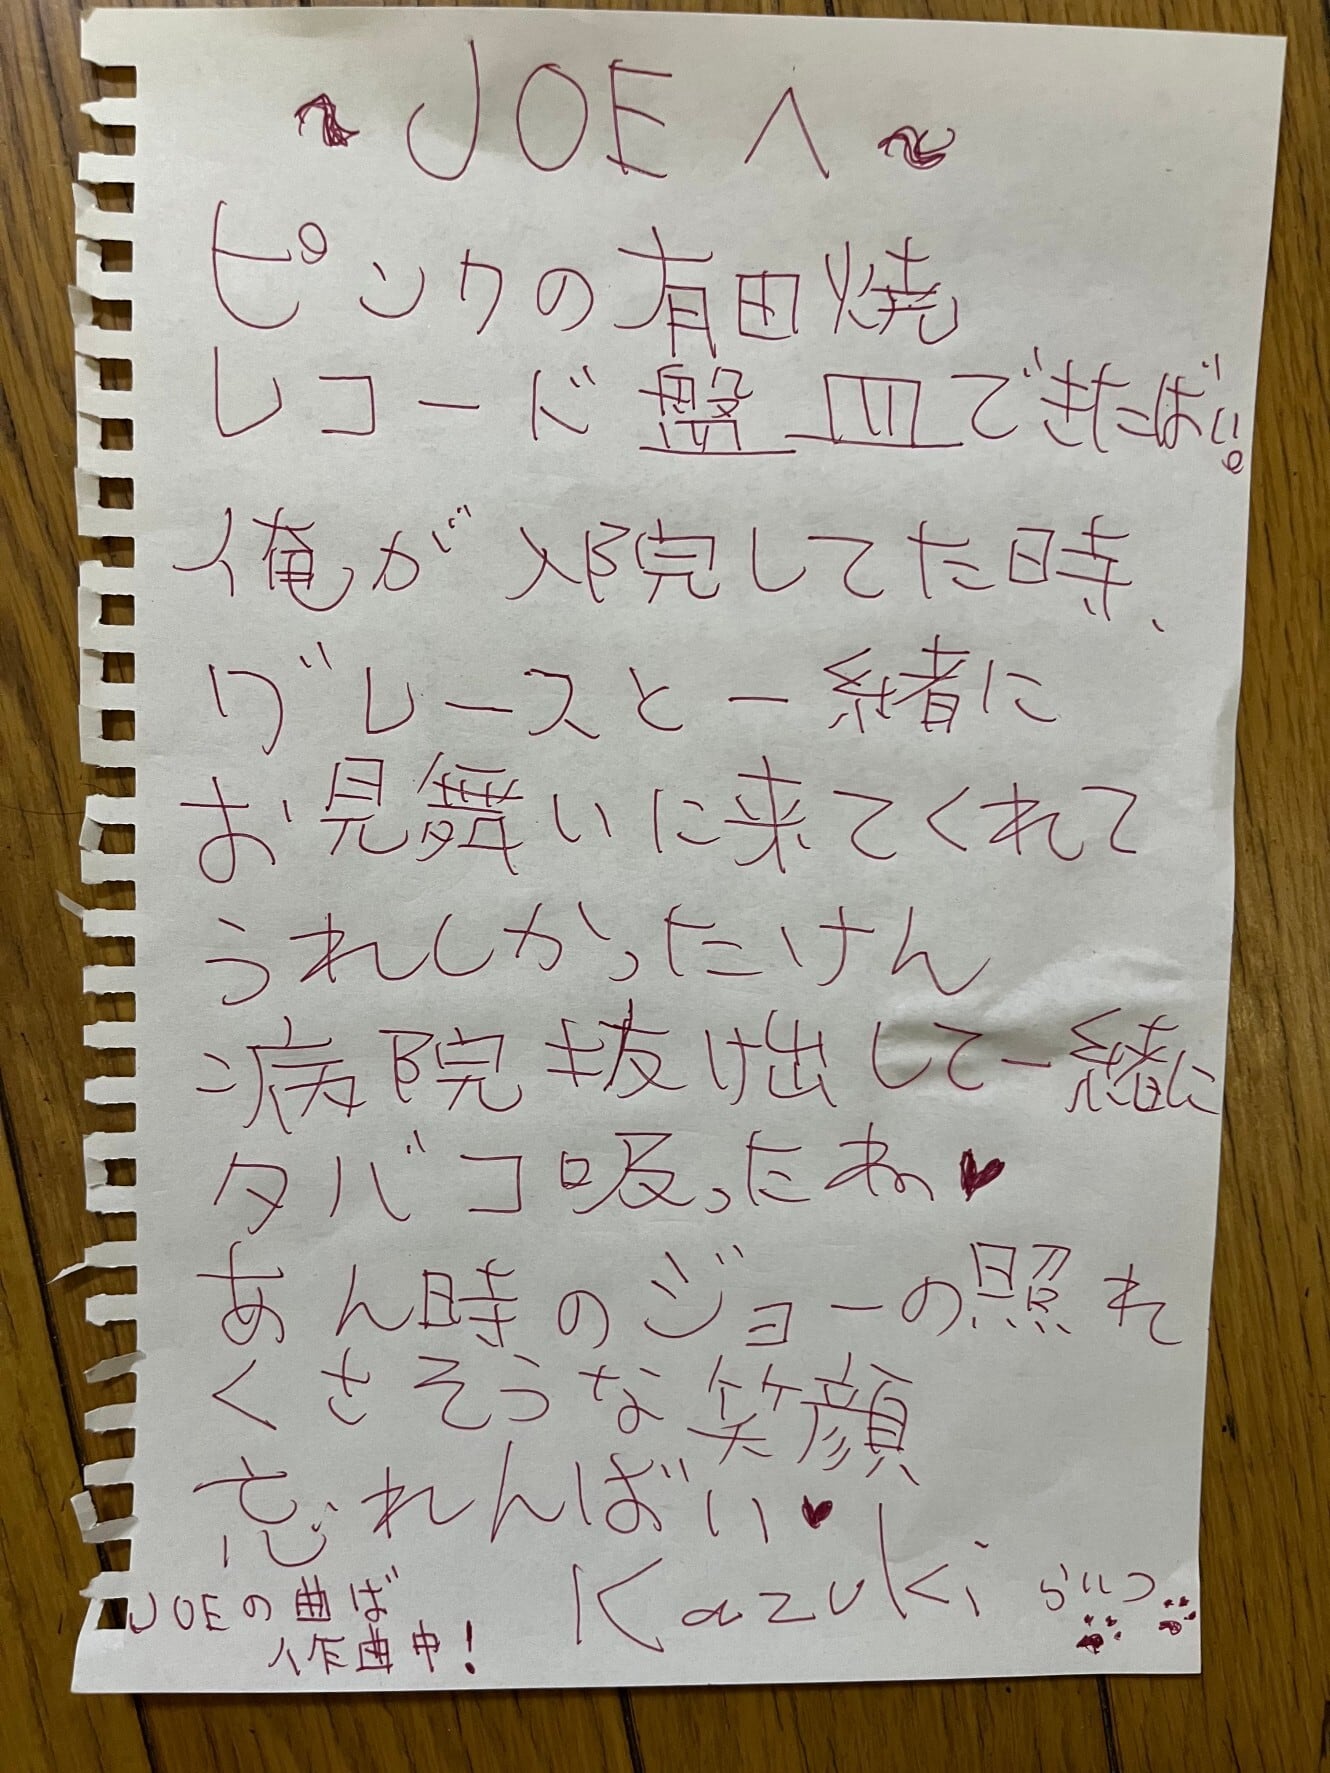 ~ JOE へ ~
ピンクの有田焼
レコード盤皿できたばい。
俺が入院してた時、
グレースと一緒に
お見舞いに来てくれて
うれしかったけん
病院抜け出して一緒に
タバコ吸ったね♥
あん時のジョーの照れ
くさそうな笑顔
忘れんばい♥
Kazuki らいつ
JOEの曲ば
作曲中!